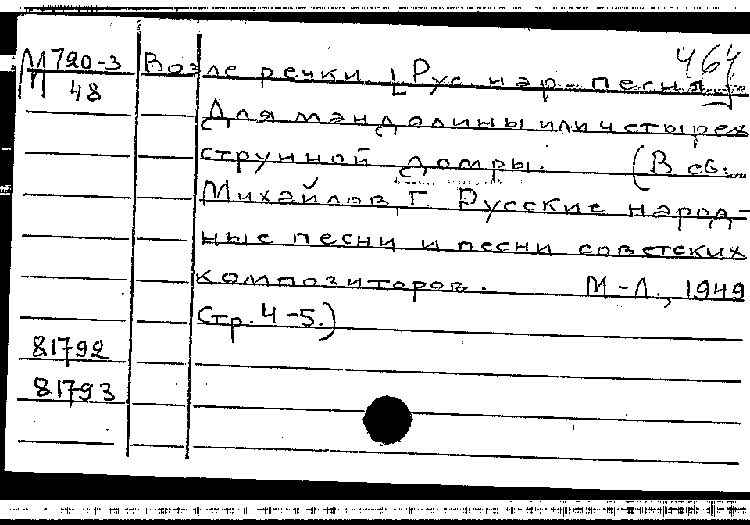 464
М 720-3
48
Возле речки [Рус. нар. песня]
Для мандолины или четырех
струнной домры. (В сб.:
Михайлов, Г. Русские народ-
ные песни и песни советских
композиторов. М-Л., 1949
Стр. 4-5.)
81792
81793